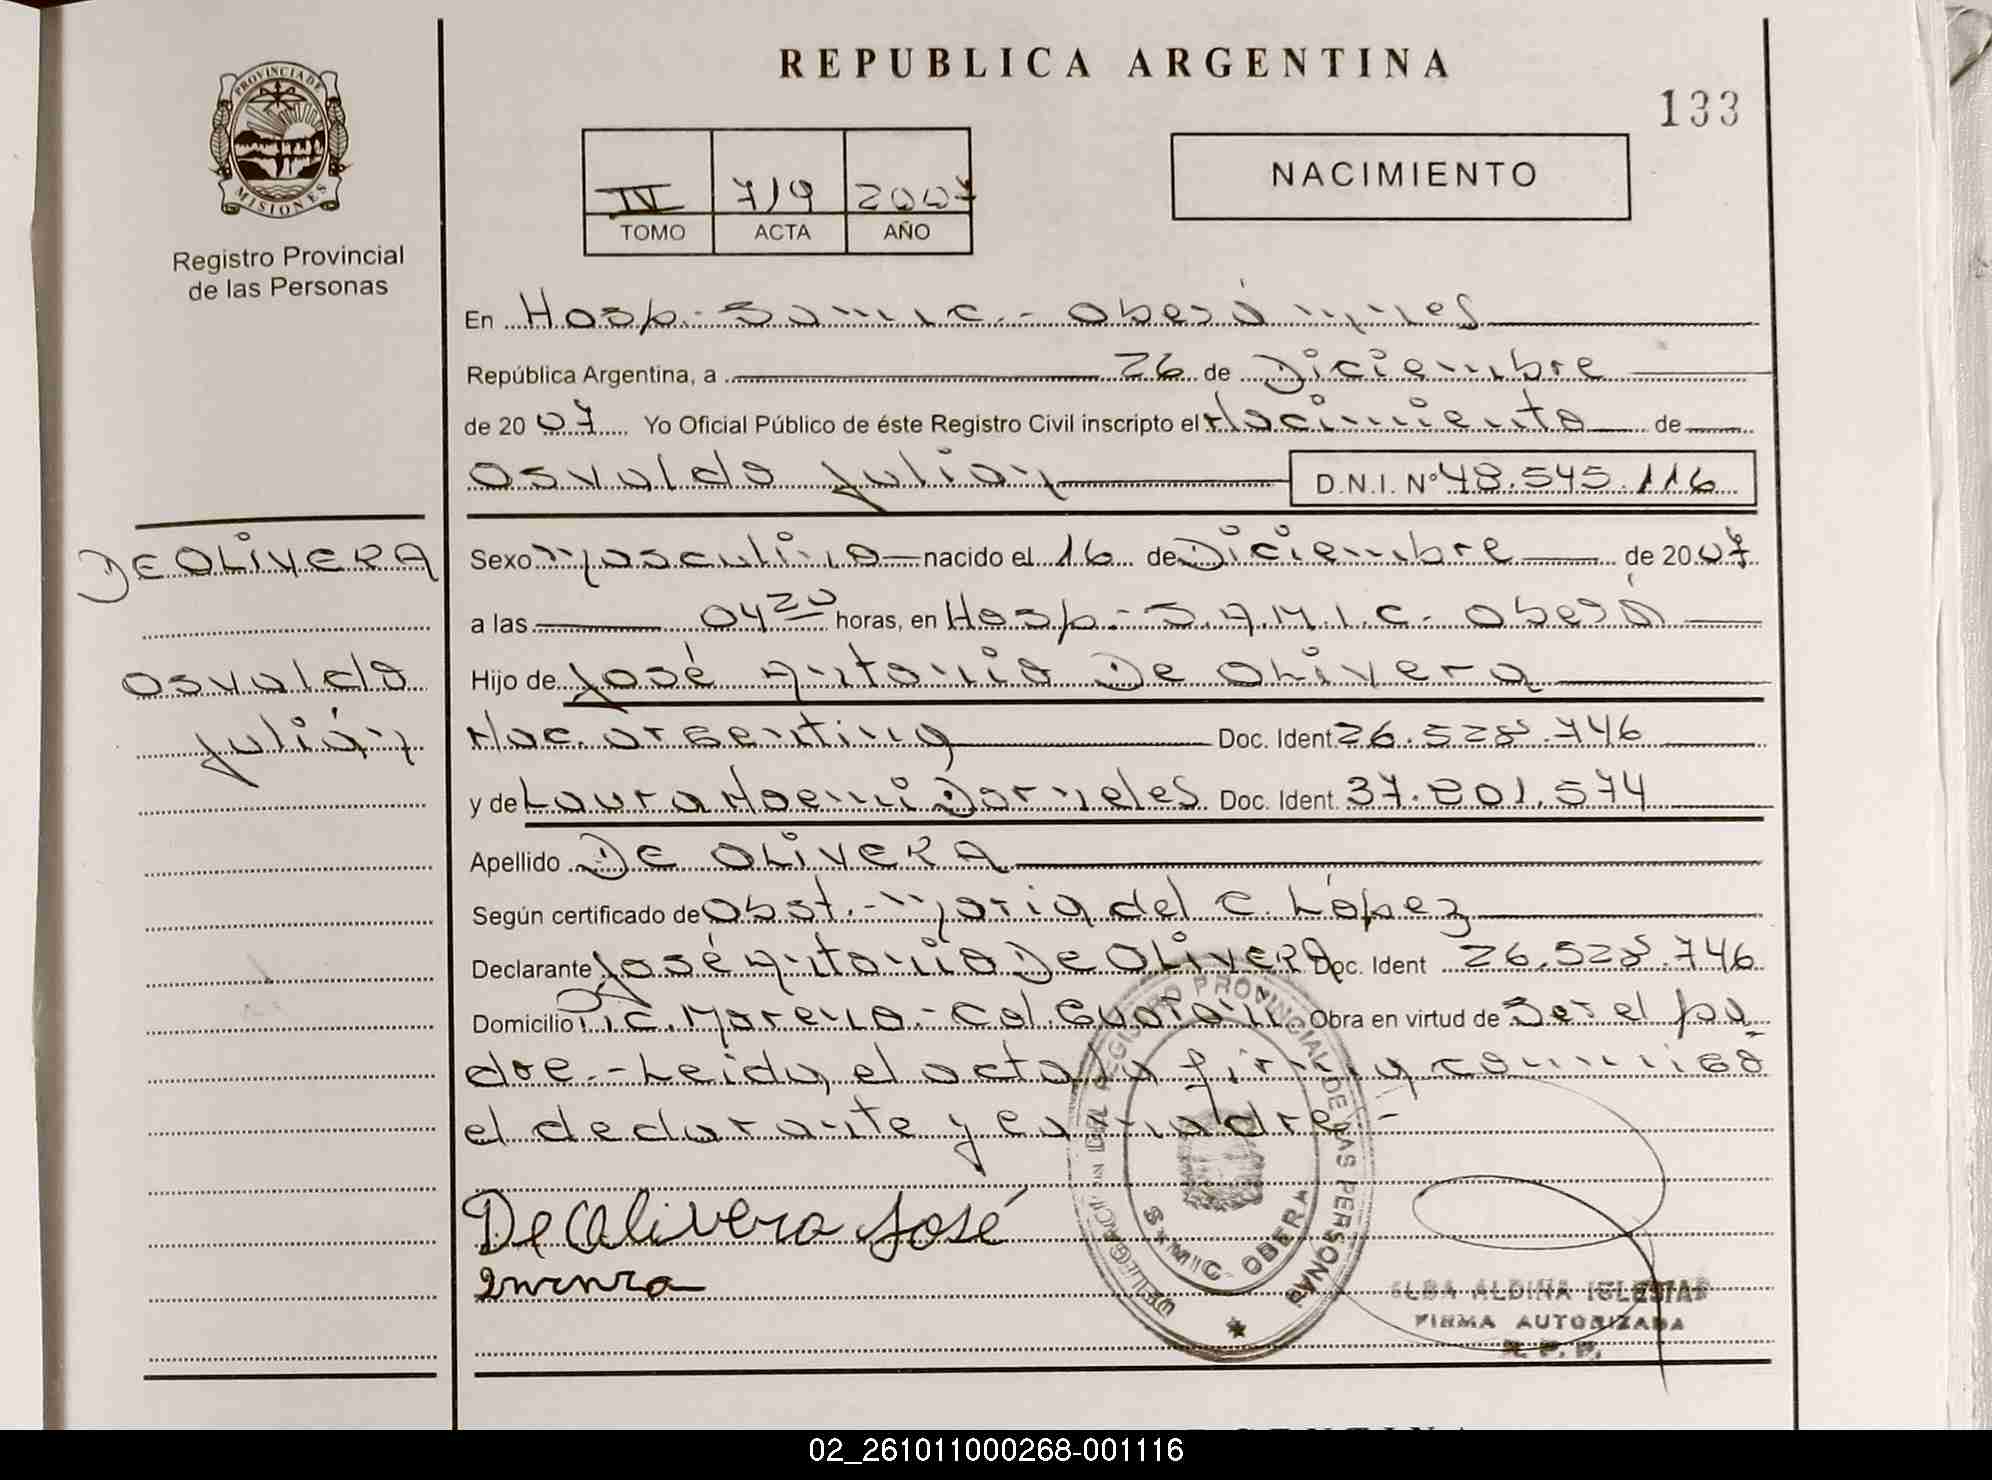 REPUBLICA ARGENTINA
133
PROVINCIA DE
MISIONES
Registro Provincial
de las Personas
IV 719 2007
TOMO ACTA AÑO
NACIMIENTO
En Hosp. Samic. - Oberá Mnes
República Argentina, a 26 de Diciembre
de 2007 Yo Oficial Público de éste Registro Civil inscripto el Nacimiento de
Osvaldo Julián D.N.I. Nº 48.545.116
DE OLIVERA
Osvaldo
Julián
Sexo Masculino nacido el 16 de Diciembre de 2007
a las 04 20 horas, en Hosp. S.A.M.I.C. Oberá
Hijo de José Antonio De OLivera
Nac. argentina Doc. Ident 26.528.746
y de Laura Noemi Dorneles Doc. Ident. 37.801.574
Apellido DE OLIVERA
Según certificado de Obst. - María del C. López
Declarante José Antonio De OLIVERA Doc. Ident 26.528.746
Domicilio Pic. Moreno - Col. Guaraní Obra en virtud de Ser el pa-
dre. - Leida, el acta la firma conmigo
el declarante y la madre. -
De Olivera José
DELEGACION DEL REGISTRO PROVINCIAL DE LAS PERSONAS
SAMIC - OBERA
ELBA ALDINA IGLESIAS
FIRMA AUTORIZADA
R. P. P.
02_261011000268-001116